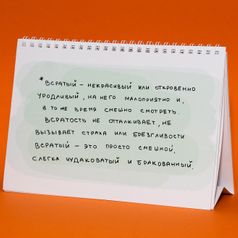 *Всратый – некрасивый или откровенно
уродливый, на него малоприятно и,
в то же время смешно смотреть.
Всратость не отталкивает, не
вызывает страха или брезгливости
Всратый – это просто смешной,
слегка чудаковатый и бракованный.